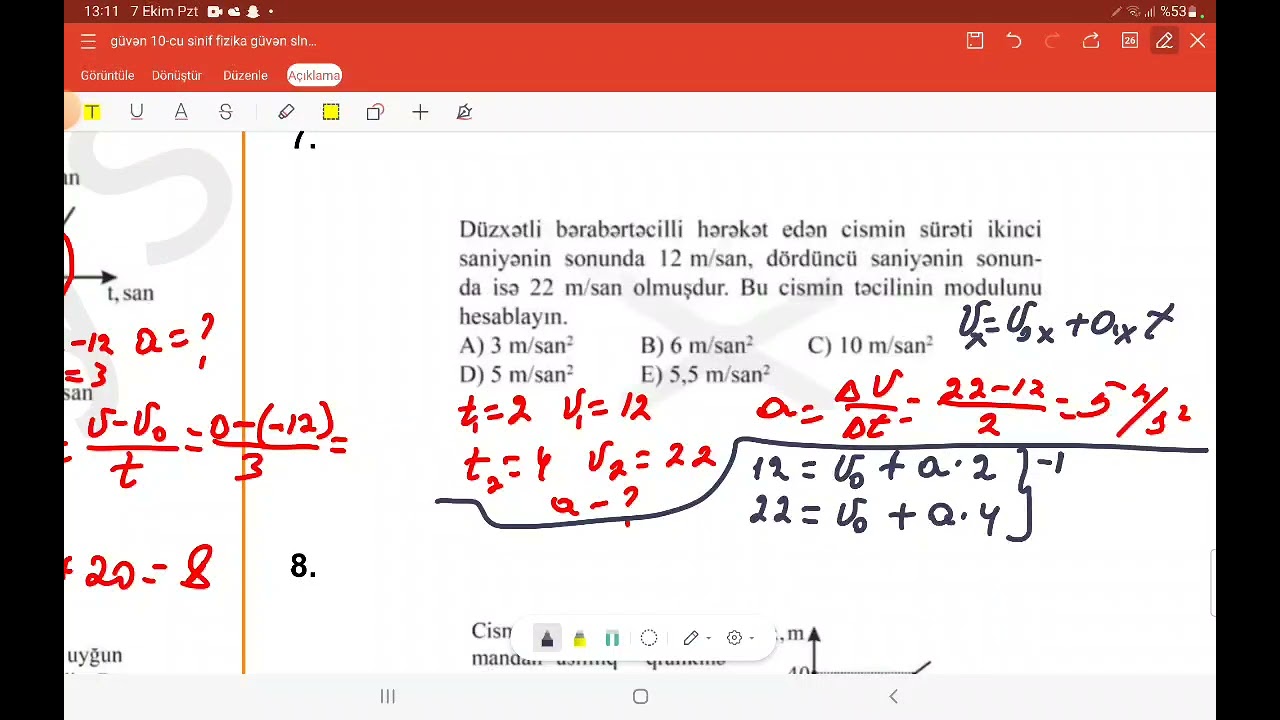 13:11 7 Ekim Pzt
%53
güvən 10-cu sinif fizika güvən sln...
26
Görüntüle Dönüştür Düzenle Açıklama
T U A S
7.
an
t, san
Düzxətli bərabərtəcilli hərəkət edən cismin sürəti ikinci
saniyənin sonunda 12 m/san, dördüncü saniyənin sonun-
da isə 22 m/san olmuşdur. Bu cismin təcilinin modulunu
hesablayın.
A) 3 m/san² B) 6 m/san² C) 10 m/san²
D) 5 m/san² E) 5,5 m/san²
Vx = V0x + ax t
-12 a = ?
= 3
san
V - V0 / t = 0 - (-12) / 3 =
t1 = 2 V1 = 12
t2 = 4 V2 = 22
a - ?
a = ΔV / Δt = 22 - 12 / 2 = 5 m/s²
12 = V0 + a · 2 ] -1
22 = V0 + a · 4
20 = 8
8.
uyğun
Cism
, m
40